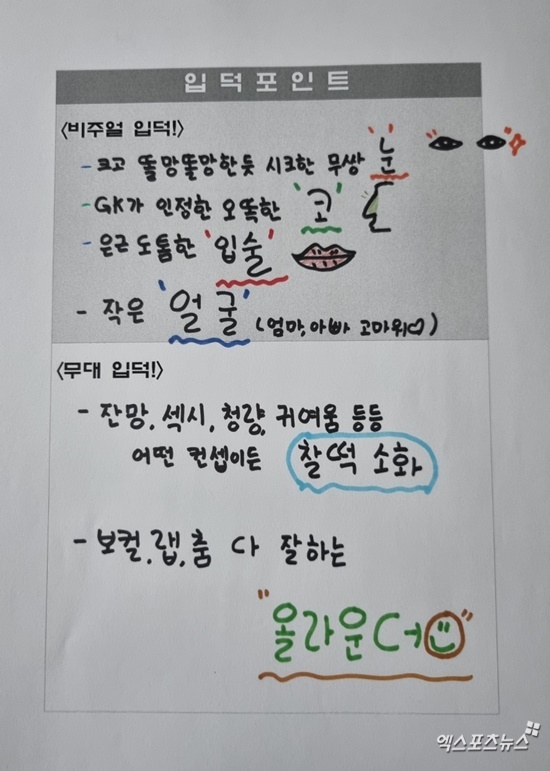 입덕포인트
<비주얼 입덕!>
- 크고 똘망똘망한듯 시크한 무쌍 '눈'
- GK가 인정한 오똑한 '코'
- 은근 도톰한 '입술'
- 작은 '얼굴' (엄마, 아빠 고마워♡)
<무대 입덕!>
- 잔망, 섹시, 청량, 귀여움 등등
어떤 컨셉이든 찰떡 소화
- 보컬, 랩, 춤 다 잘하는
"올라운더"
엑스포츠뉴스